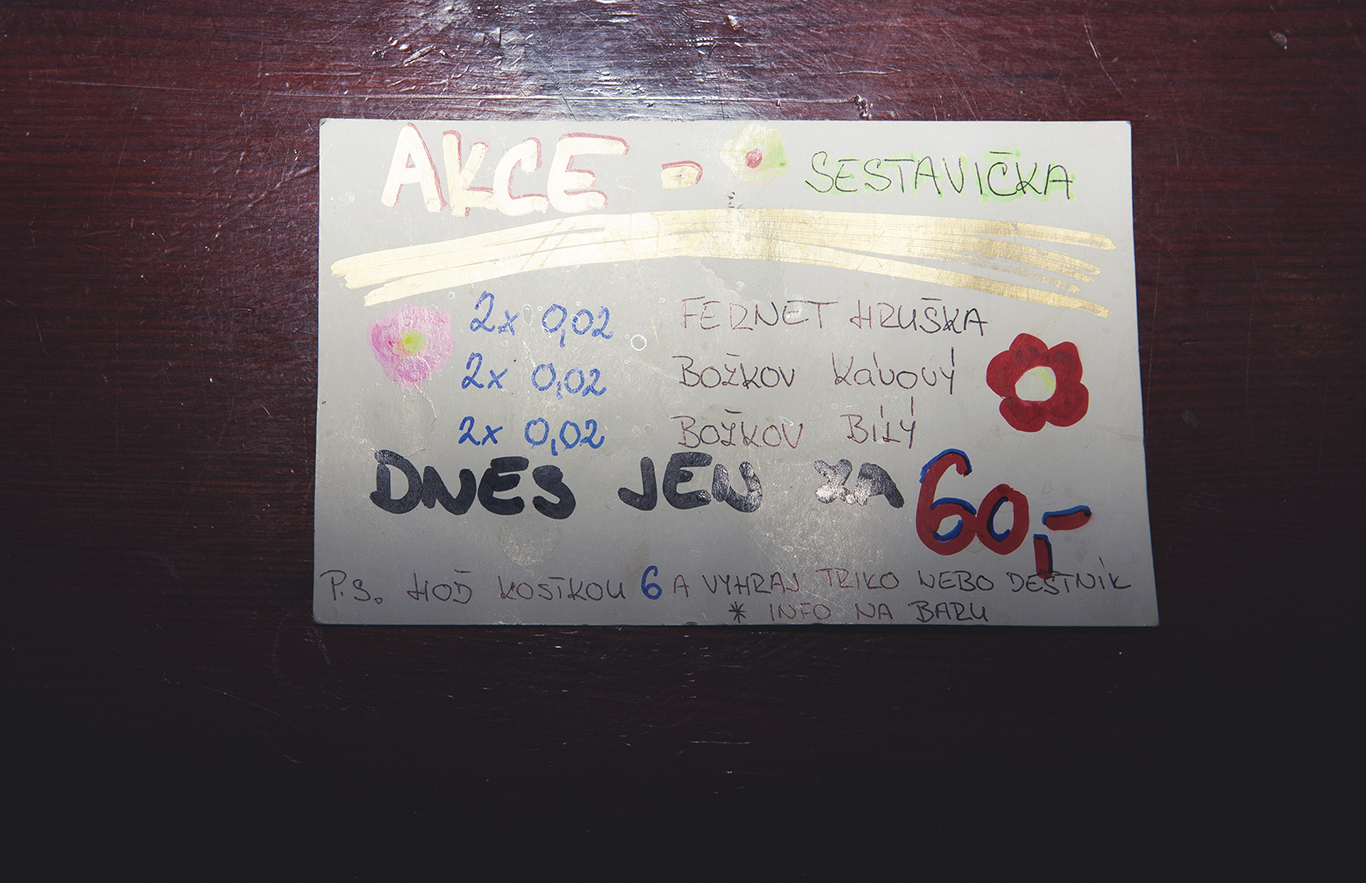 AKCE - SESTAVIČKA
2x 0,02 FERNET HRUŠKA
2x 0,02 BOŽKOV Kávový
2x 0,02 BOŽKOV BÍLÝ
DNES JEN ZA 60,-
P.S. HOĎ KOSTKOU 6 A VYHRAJ TRIKO NEBO DEŠTNÍK
* INFO NA BARU